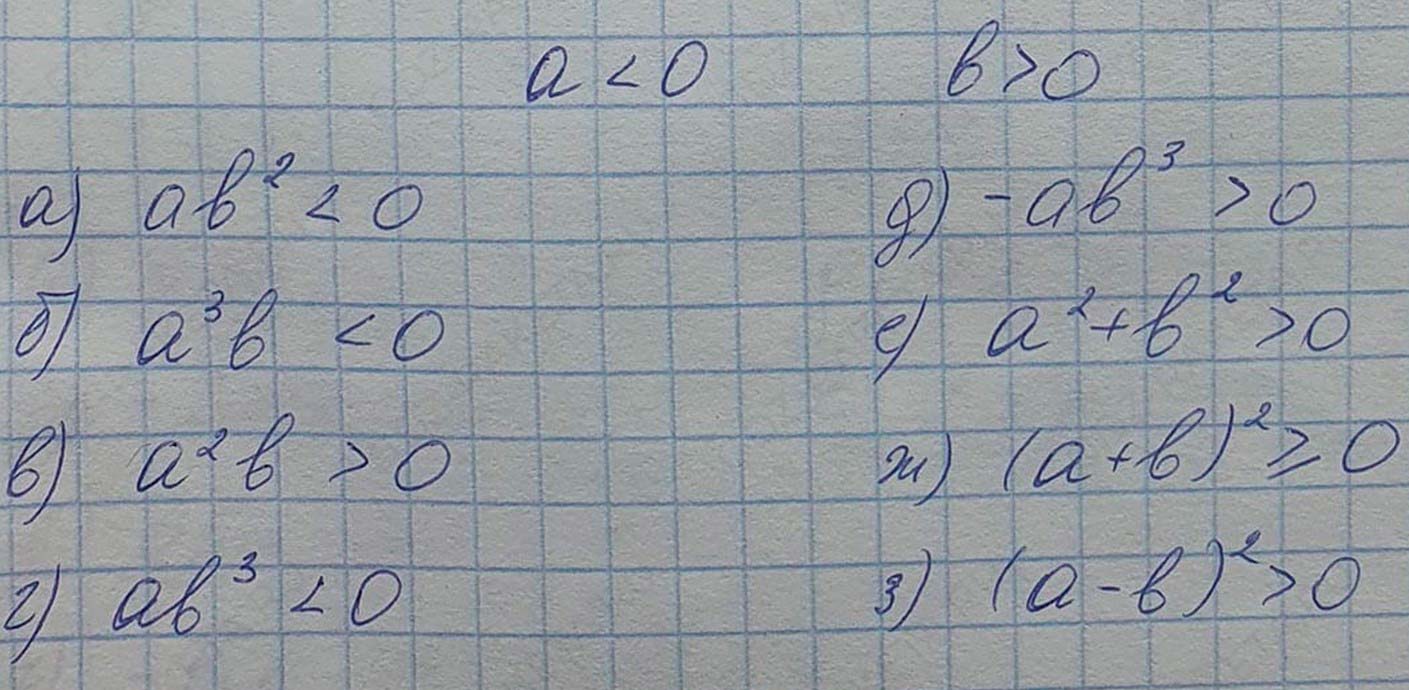 a < 0 в > 0
а) aв² < 0
б) a³в < 0
в) a²в > 0
г) aв³ < 0
д) -aв³ > 0
е) a² + в² > 0
ж) (a + в)² ≥ 0
з) (a - в)² > 0